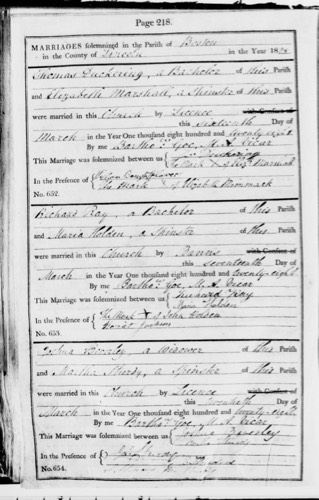 Page 218.
MARRIAGES solemnized in the Parish of Boston
in the County of Lincoln in the Year 1828
Thomas Duckering, a Bachelor of this Parish
and Elizabeth Marshall, a Spinster of this Parish
were married in this Church by Licence with Consent of
this sixteenth Day of
March in the Year One thousand eight hundred and twenty eight
By me Bartho Goe, M. A. Vicar
This Marriage was solemnized between us
In the Presence of The Mark of
No. 652.
Richard Ray, a Bachelor of this Parish
and Maria Holden, a Spinster of this Parish
were married in this Church by Banns with Consent of
this seventeenth Day of
March in the Year One thousand eight hundred and twenty eight
By me Bartho Goe, M. A. Vicar
This Marriage was solemnized between us Richard Ray
Maria Holden
In the Presence of The Mark X of John Holden
No. 653.
Joshua a Widower of this Parish
and Martha a Spinster of this Parish
were married in this Church by Licence with Consent of
this twentieth Day of
March in the Year One thousand eight hundred and twenty eight
By me Bartho Goe, M. A. Vicar
This Marriage was solemnized between us Joshua
In the Presence of
No. 654.